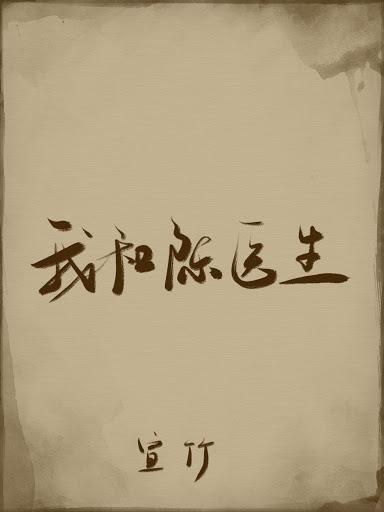 我和陈医生
宜竹